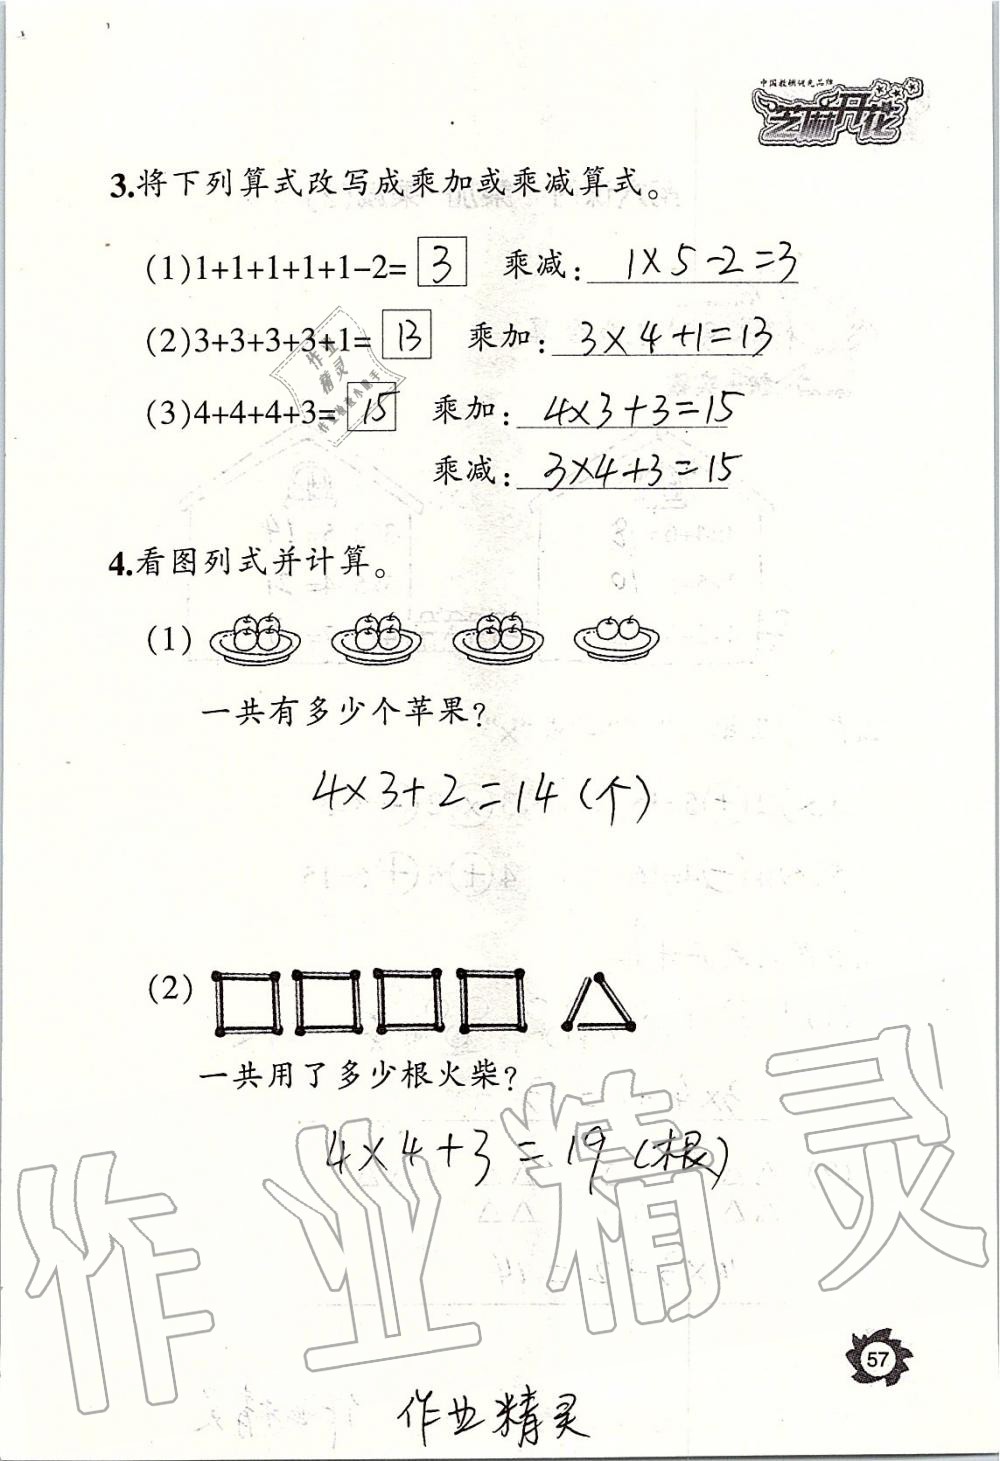 中国教辅领先品牌
芝麻开花
3.将下列算式改写成乘加或乘减算式。
(1)1+1+1+1+1-2= 3 乘减: 1×5-2=3
(2)3+3+3+3+1= 13 乘加: 3×4+1=13
(3)4+4+4+3= 15 乘加: 4×3+3=15
乘减: 3×4+3=15
作业
精灵
4.看图列式并计算。
(1)
一共有多少个苹果?
4×3+2=14(个)
(2)
一共用了多少根火柴?
4×4+3=19(根)
作业精灵
57
作业精灵